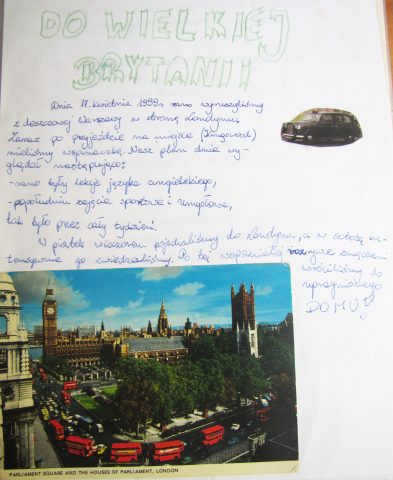 DO WIELKIEJ
BRYTANII
Dnia 17 kwietnia 1999r. rano wyruszyliśmy
z deszczowej Warszawy w stronę Londynu.
Zaraz po przyjeździe na miejsce (Kingswood)
mieliśmy wspinaczkę. Nasz plan dnia wy-
glądał następująco:
-rano były lekcje języka angielskiego,
-popołudniu zajęcia sportowe i umysłowe,
tak było przez cały tydzień.
W piątek wieczorem pojechaliśmy do Londynu, a w sobotę in-
tensywnie go zwiedzaliśmy. Po tej wspaniałej zmęczeni
wróciliśmy do
upragnionego
DOMU!
PARLIAMENT SQUARE AND THE HOUSES OF PARLIAMENT, LONDON